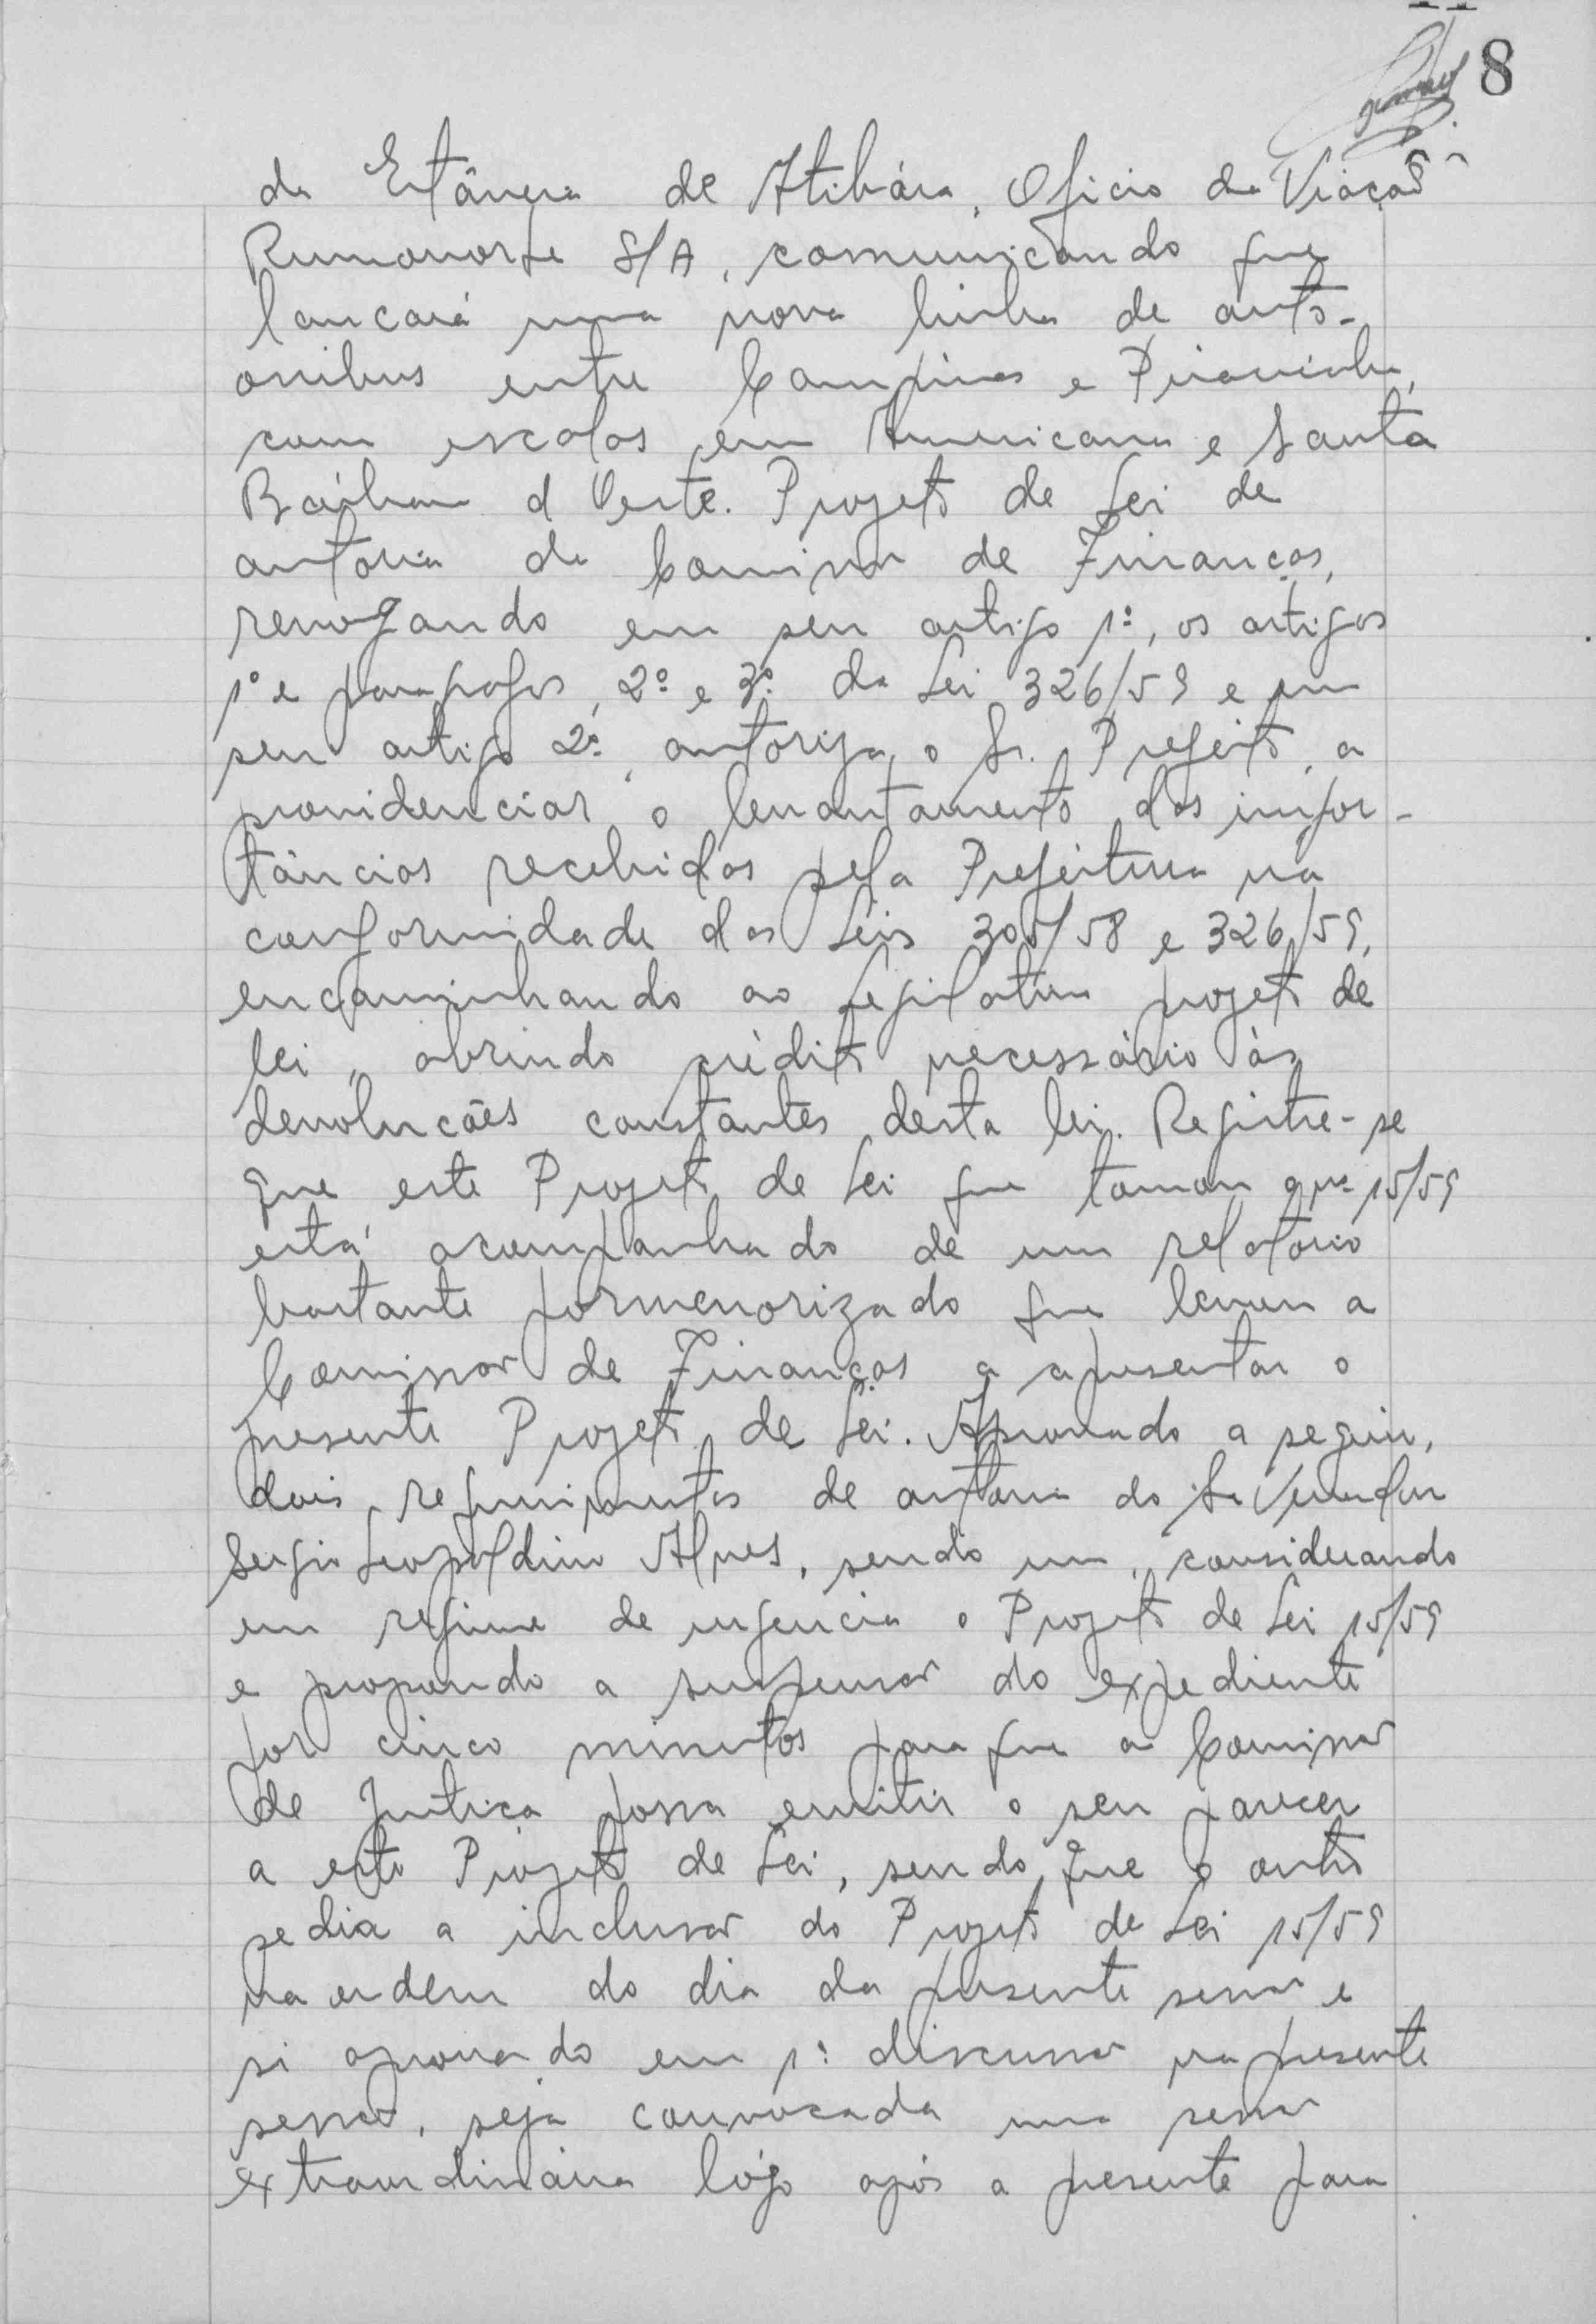 8
da Estância de Atibáia. Oficio da Viação
Rumonorte S/A, comunicando que
lancará uma nova linha de auto-
onibus entre Campinas e Piracicaba,
com escalas em Americana e Santa
Bárbara d Oeste. Projeto de Lei de
autoria da Comissão de Finanças,
revogando em seu artigo 1º, os artigos
1º e paragrafos, 2º e 3º da Lei 326/59 e em
seu artigo 2º, autoriza o Sr. Prefeito, a
providenciar o levantamento das impor-
tâncias recebidas pela Prefeitura na
conformidade das Leis 305/58 e 326/59,
encaminhando ao Legislativo projeto de
lei, abrindo crédito necessário às
devoluções constantes desta lei. Registre-se
que este Projeto de Lei que tomou o nº 15/59
está acompanhado de um relatório
bastante pormenorizado que levou a
Comissão de Finanças a apresentar o
presente Projeto de Lei. Aprovado a seguir,
dois requerimentos de autoria do Sr Vereador
Sergio Leopoldino Alves, sendo um, considerando
em regime de urgencia o Projeto de Lei 15/59
e propondo a suspensão do expediente
por cinco minutos para que a Comissão
de Justiça possa emitir o seu parecer
a este Projeto de Lei, sendo que o outro
pedia a inclusão do Projeto de Lei 15/59
na ordem do dia da presente sessão e
si aprovado em 1ª discussão na presente
sessão, seja convocada uma sessão
extraordinária lógo após a presente para